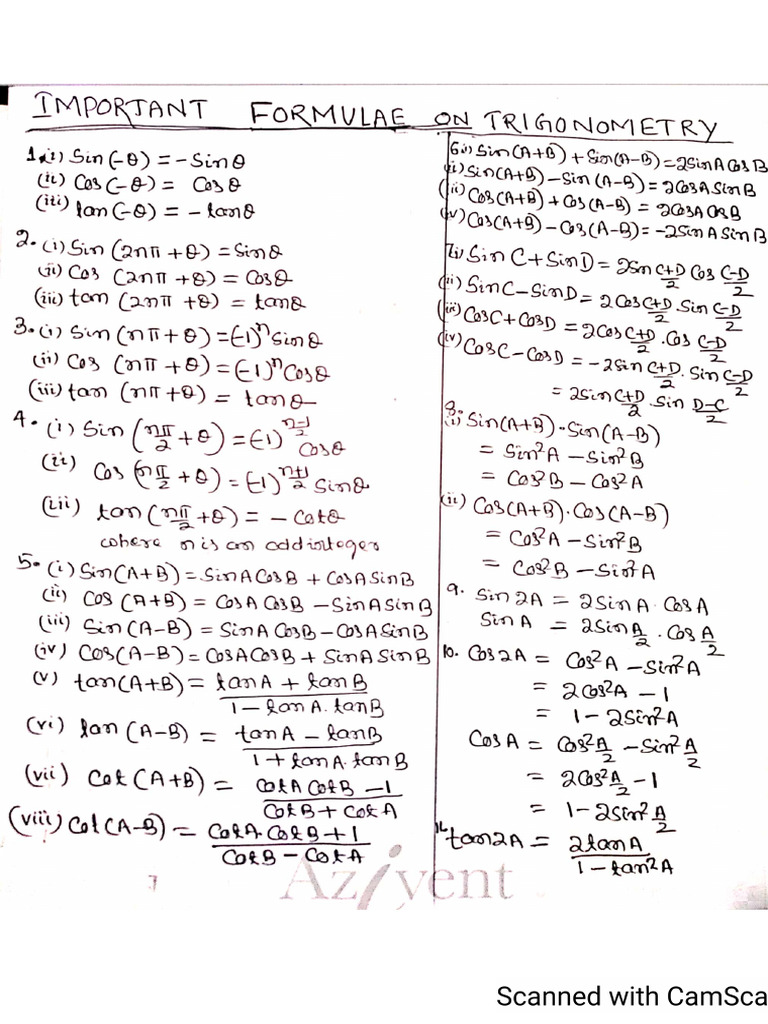 IMPORTANT FORMULAE ON TRIGONOMETRY
1. (i) Sin(-θ) = -Sinθ
(ii) Cos(-θ) = Cosθ
(iii) tan(-θ) = -tanθ
2. (i) Sin(2nπ + θ) = Sinθ
(ii) Cos (2nπ + θ) = Cosθ
(iii) tan (2nπ + θ) = tanθ
3. (i) Sin (nπ + θ) = (-1)ⁿ Sinθ
(ii) Cos (nπ + θ) = (-1)ⁿ Cosθ
(iii) tan (nπ + θ) = tanθ
4. (i) Sin (nπ/2 + θ) = (-1)^(n-1)/2 Cosθ
(ii) Cos (nπ/2 + θ) = (-1)^(n+1)/2 Sinθ
(iii) tan (nπ/2 + θ) = - Cotθ
where n is an odd integer
5. (i) Sin(A+B) = SinA CosB + CosA SinB
(ii) Cos (A+B) = CosA CosB - SinA SinB
(iii) Sin(A-B) = SinA CosB - CosA SinB
(iv) Cos(A-B) = CosA CosB + SinA SinB
(v) tan(A+B) = tanA + tanB / 1 - tanA. tanB
(vi) tan (A-B) = tanA - tanB / 1 + tanA. tanB
(vii) Cot (A+B) = CotA CotB - 1 / CotB + CotA
(viii) Cot(A-B) = CotA. CotB + 1 / CotB - CotA
6. (i) Sin(A+B) + Sin(A-B) = 2SinA CosB
(ii) Sin(A+B) - Sin(A-B) = 2CosA SinB
(iii) Cos(A+B) + Cos(A-B) = 2CosA CosB
(iv) Cos(A+B) - Cos(A-B) = -2SinA SinB
7. (i) Sin C + SinD = 2Sin C+D/2 Cos C-D/2
(ii) SinC - SinD = 2Cos C+D/2 . Sin C-D/2
(iii) CosC + CosD = 2Cos C+D/2 . Cos C-D/2
(iv) CosC - CosD = -2Sin C+D/2 . Sin C-D/2
= 2Sin C+D/2 . Sin D-C/2
8. (i) Sin(A+B) · Sin(A-B)
= Sin²A - Sin²B
= Cos²B - Cos²A
(ii) Cos(A+B) · Cos(A-B)
= Cos²A - Sin²B
= Cos²B - Sin²A
9. Sin 2A = 2SinA. CosA
Sin A = 2Sin A/2 . Cos A/2
10. Cos2A = Cos²A - Sin²A
= 2Cos²A - 1
= 1 - 2Sin²A
CosA = Cos² A/2 - Sin² A/2
= 2Cos² A/2 - 1
= 1 - 2Sin² A/2
11. tan2A = 2tanA / 1 - tan²A
Aziyent
Scanned with CamSca